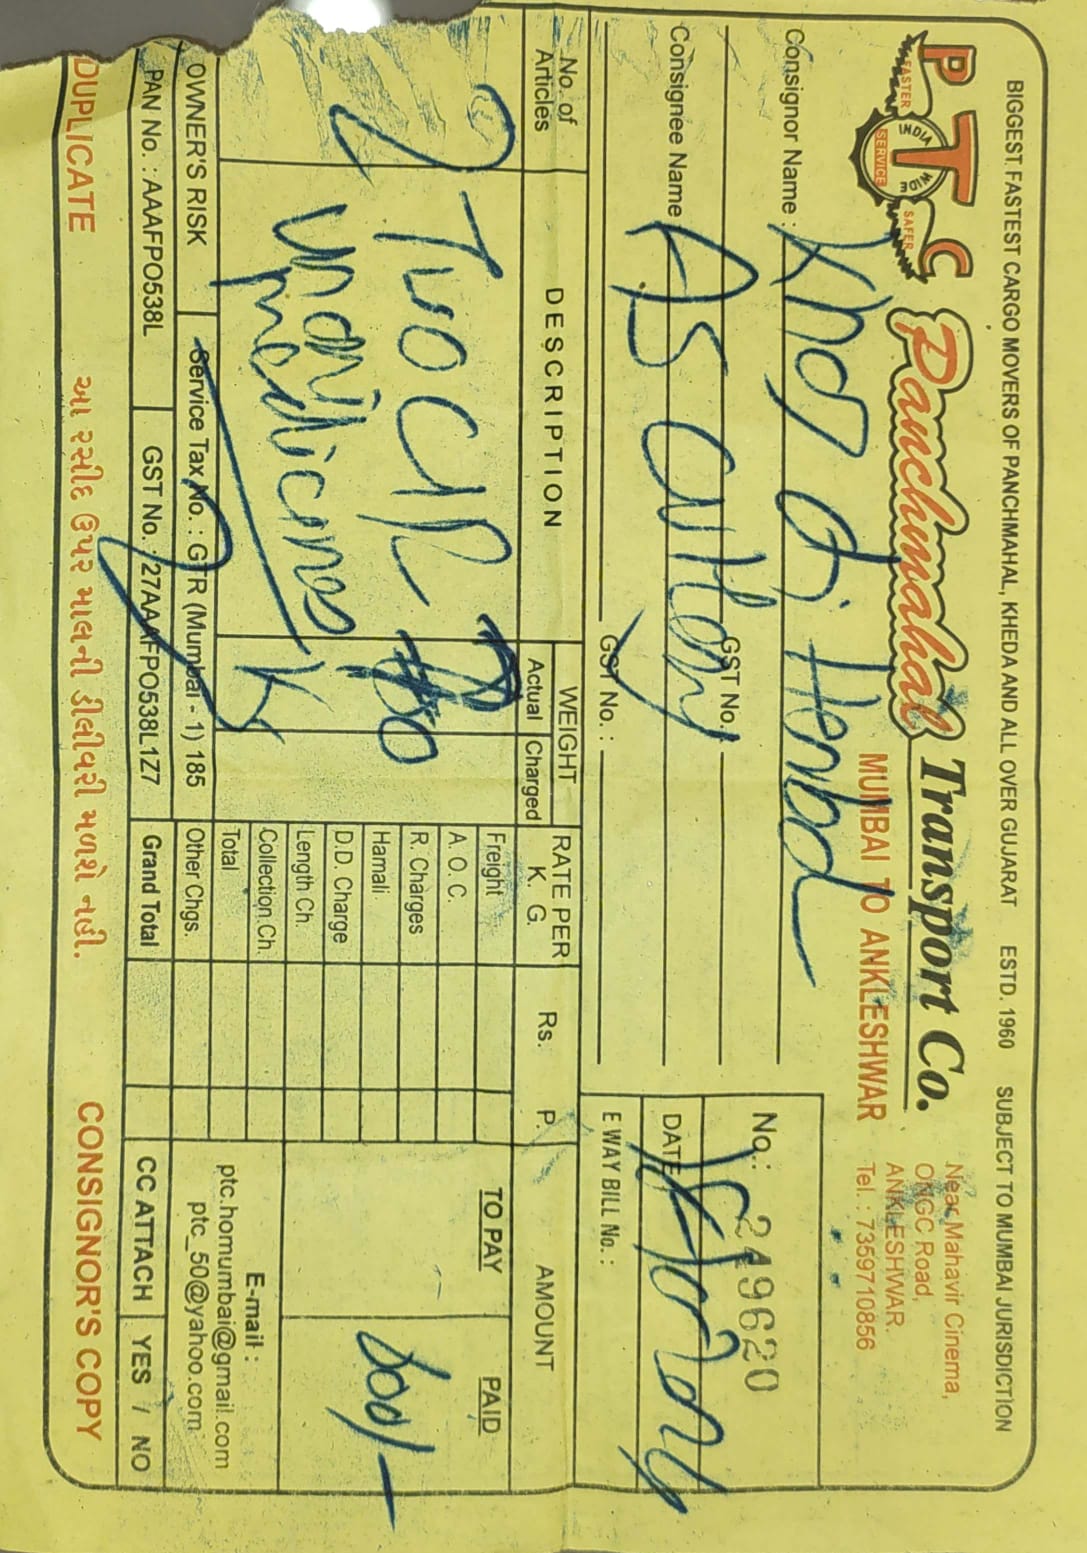 BIGGEST FASTEST CARGO MOVERS OF PANCHMAHAL, KHEDA AND ALL OVER GUJARAT ESTD. 1960 SUBJECT TO MUMBAI JURISDICTION
PTC
FASTER SAFER
INDIA WIDE
SERVICE
Panchmahal Transport Co.
MUMBAI TO ANKLESHWAR
Near Mahavir Cinema,
ONGC Road,
ANKLESHWAR.
Tel. : 7359710856
Consignor Name :
GST No. :
Consignee Name : AS
GST No. :
No.: 249620
DATE
E WAY BILL No. :
No. of Articles DESCRIPTION WEIGHT RATE PER K. G. Rs. P. AMOUNT
Actual Charged
TO PAY PAID
2 Two
medicines
Freight
A. O. C.
R. Charges
Hamali
D.D. Charge
Length Ch.
Collection Ch.
Total
Other Chgs.
Grand Total
E-mail :
ptc.homumbai@gmail.com
ptc_50@yahoo.com
OWNER'S RISK Service Tax No. : GTR (Mumbai - 1) 185
PAN No. : AAAFPO538L GST No. : 27AAAFPO538L1Z7
CC ATTACH YES / NO
DUPLICATE આ રસીદ ઉપર માલની ડીલીવરી મળશે નહી. CONSIGNOR'S COPY